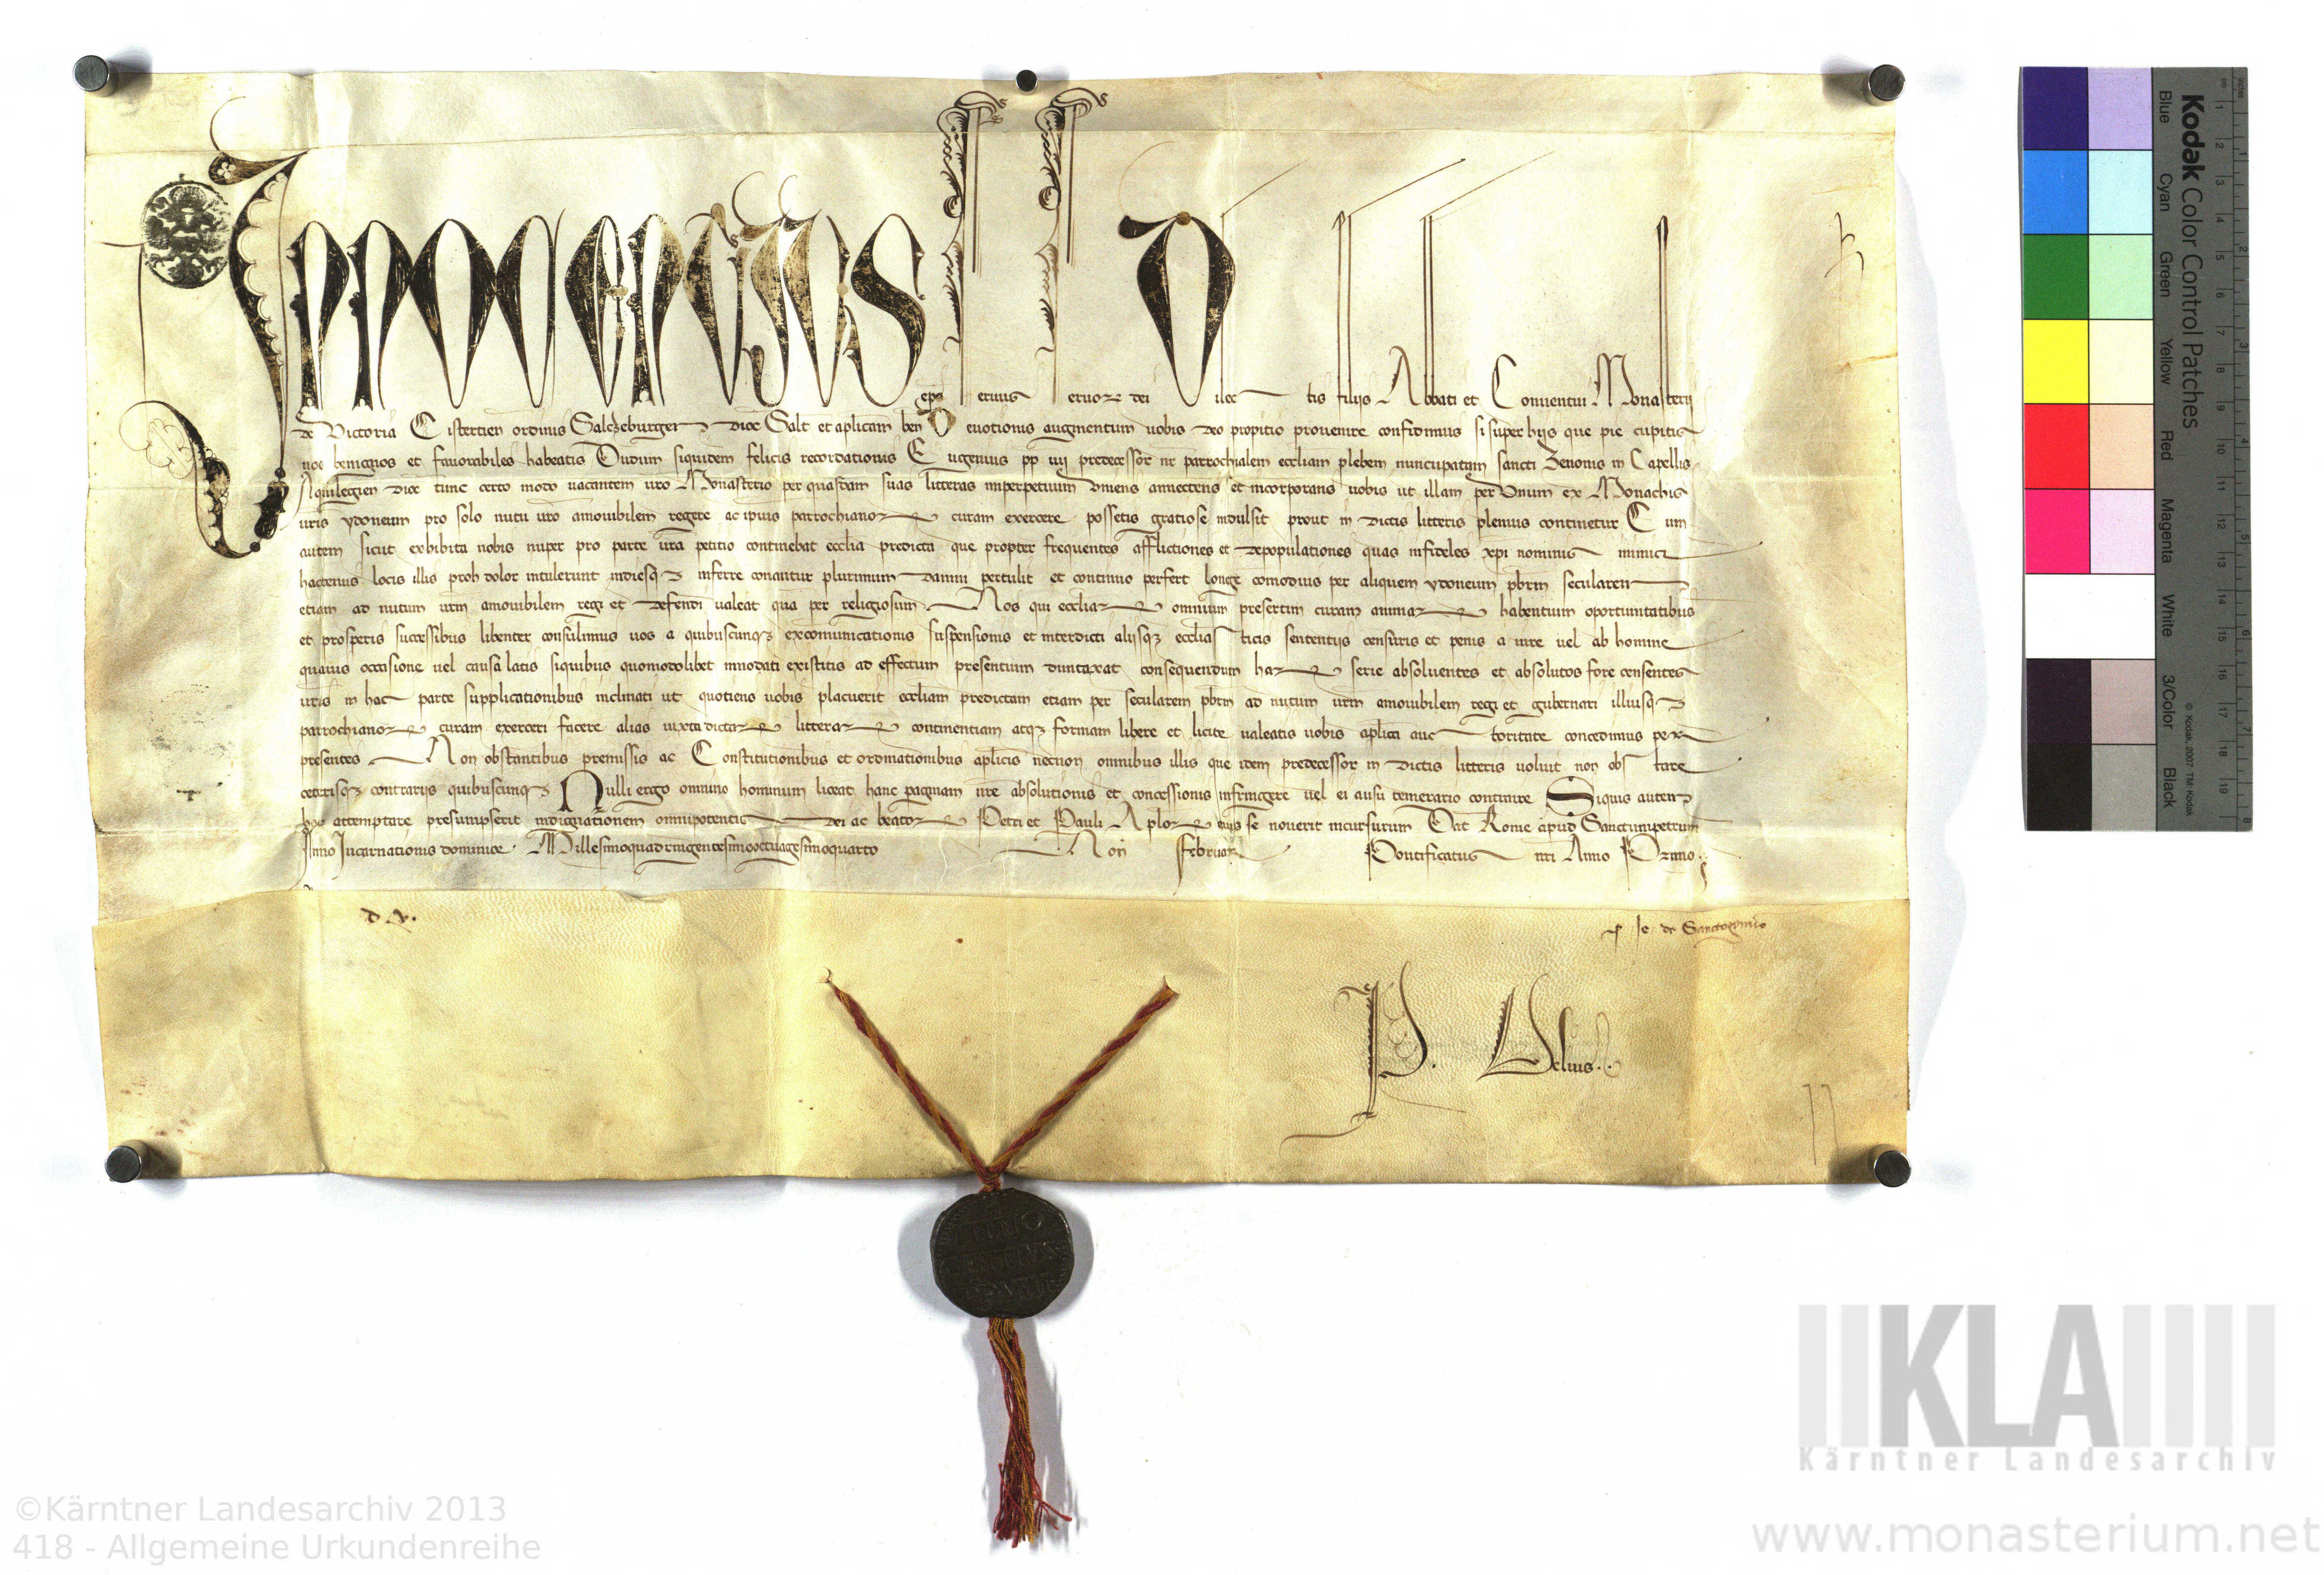 Innocentius eps seruus seruor dei Dilectis filijs Abbati et Conuentui Monasterij
de Victoria Cistercien ordinis Salczeburgen dioc Salt et aplicam ben Deuotionis augmentum uobis deo propitio prouenire confidimus si super hijs que pie cupitis
nos benignos et fauorabiles habeatis Dudum siquidem felicis recordationis Eugenius pp iiij predecessor nr parrochialem eccliam plebem nuncupatam sancti Zenonis in Capellis
Aquilegien dioc tunc certo modo uacantem uro Monasterio per quasdam suas litteras imperpetuum Vniens annectens et incorporans uobis ut illam per Vnum ex Monachis
uris ydoneum pro solo nutu uro amouibilem regere ac ipius parrochianor curam exercere possetis gratiose indulsit prout in dictis litteris plenius continetur Cum
autem sicut exhibita nobis nuper pro parte ura petitio continebat ecclia predicta que propter frequentes afflictiones et depopulationes quas infideles xpi nominis inimici
hactenus locis illis proh dolor intulerunt indiesq inferre conantur plurimum damni pertulit et continuo perfert longe comodius per aliquem ydoneum pbrm secularem
etiam ad nutum urm amouibilem regi et defendi ualeat qua per religiosum Nos qui eccliar omnium presertim curam animar habentium oportunitatibus
et prosperis successibus libenter consulimus uos a quibuscunq excomunicationis suspensionis et interdicti alijsq ecclesiasticis sententijs censuris et penis a iure uel ab homine
quauis occasione uel causa latis siquibus quomodolibet innodati existitis ad effectum presentium duntaxat consequendum har serie absoluentes et absolutos fore censentes
uris in hac parte supplicationibus inclinati ut quotiens uobis placuerit eccliam predictam etiam per secularem pbrm ad nutum urm amouibilem regi et gubernari illiusq
parrochianor curam exerceri facere alias iuxta dictar litterar continentiam atq formam libere et licite ualeatis uobis aplica auctoritate concedimus per
presentes Non obstantibus premissis ac Constitutionibus et ordinationibus aplicis necnon omnibus illis que idem predecessor in dictis litteris uoluit non obstare
ceterisq contrarijs quibuscunq Nulli ergo omnino hominum liceat hanc paginam nre absolutionis et concessionis infringere uel ei ausu temerario contraire Siquis autem
hoc attemptare presumpserit indignationem omnipotentis dei ac beator Petri et Pauli Aplor eius se nouerit incursurum Dat Rome apud Sanctumpetrum
Anno Incarnationis dominice Millesimoquadringentesimooctuagesimoquarto Non Februar Pontificatus nri Anno Primo
d. v.
p Je de Sanctogemino
P. Velius
INNOCENTIVS
PP VIII
©Kärntner Landesarchiv 2013
418 - Allgemeine Urkundenreihe
KLA
Kärntner Landesarchiv
www.monasterium.net
Kodak Color Control Patches
© Kodak, 2007 TM: Kodak
Blue Cyan Green Yellow Red Magenta White 3/Color Black